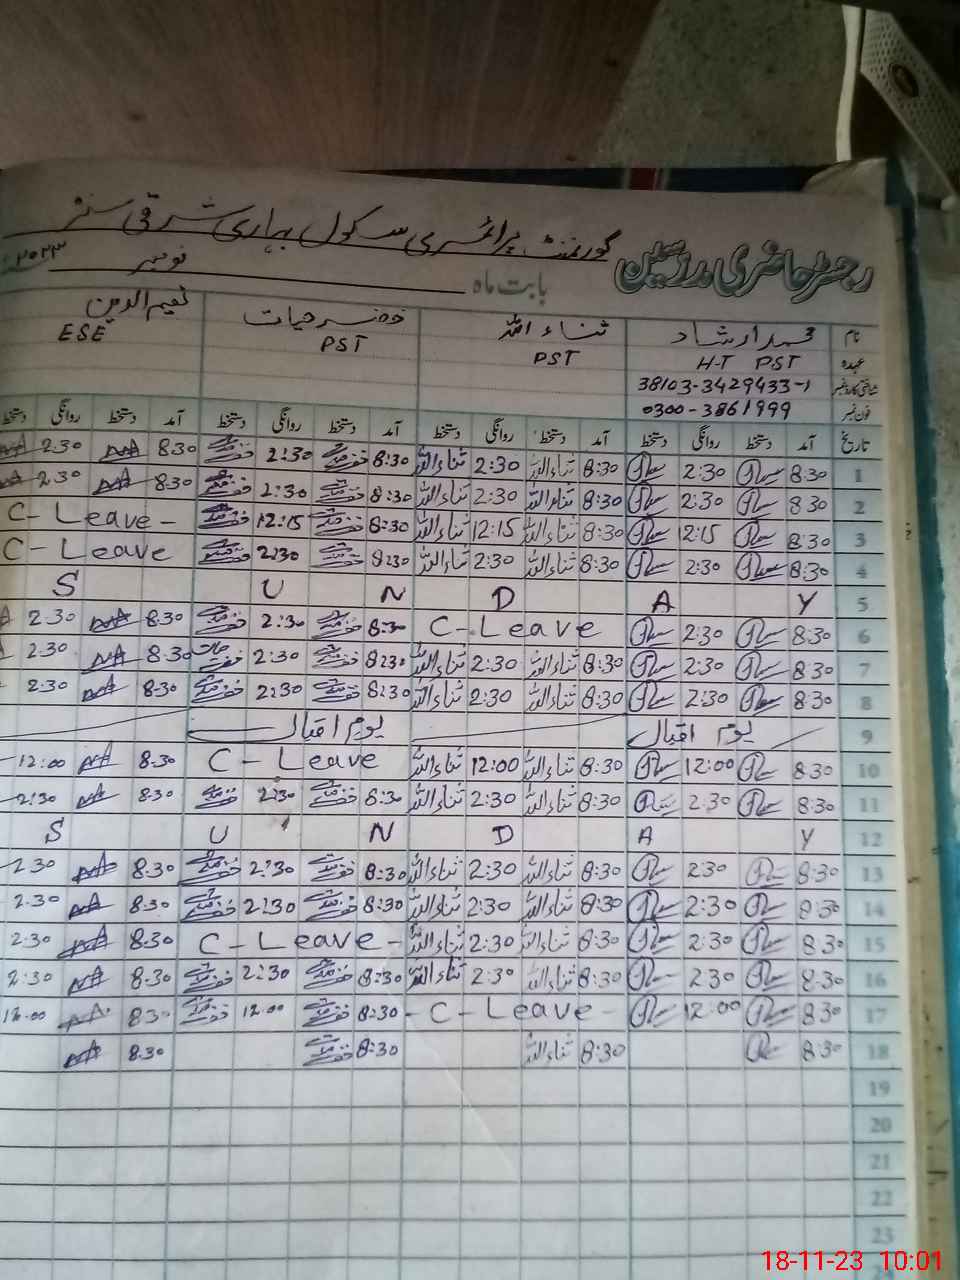 گورنمنٹ پرائمری سکول بہاری شرقی سنٹر
رجسٹر حاضری مدرسین بابت ماہ نومبر ۲۰۲۳
نام محمد ارشاد ثناء اللہ خضر حیات نعیم الدین
عہدہ H-T PST PST PST ESE
شناختی کارڈ نمبر 38103-3429433-1
فون نمبر 0300-3861999
تاریخ آمد دستخط روانگی دستخط آمد دستخط روانگی دستخط آمد دستخط روانگی دستخط آمد دستخط روانگی دستخط
1 8:30 2:30 8:30 ثناء اللہ 2:30 ثناء اللہ 8:30 2:30 8:30 2:30
2 8:30 2:30 8:30 ثناء اللہ 2:30 ثناء اللہ 8:30 2:30 8:30 2:30
3 8:30 12:15 8:30 ثناء اللہ 12:15 ثناء اللہ 8:30 12:15 C-Leave-
4 8:30 2:30 8:30 ثناء اللہ 2:30 ثناء اللہ 8:30 2:30 C-Leave
5 S U N D A Y
6 8:30 2:30 C-Leave 8:30 2:30 8:30 2:30
7 8:30 2:30 8:30 ثناء اللہ 2:30 ثناء اللہ 8:30 2:30 8:30 2:30
8 8:30 2:30 8:30 ثناء اللہ 2:30 ثناء اللہ 8:30 2:30 8:30 2:30
9 یوم اقبال یوم اقبال
10 8:30 12:00 8:30 ثناء اللہ 12:00 ثناء اللہ C-Leave 8:30 12:00
11 8:30 2:30 8:30 ثناء اللہ 2:30 ثناء اللہ 8:30 2:30 8:30 2:30
12 S U N D A Y
13 8:30 2:30 8:30 ثناء اللہ 2:30 ثناء اللہ 8:30 2:30 8:30 2:30
14 8:30 2:30 8:30 ثناء اللہ 2:30 ثناء اللہ 8:30 2:30 8:30 2:30
15 8:30 2:30 8:30 ثناء اللہ 2:30 ثناء اللہ C-Leave- 8:30 2:30
16 8:30 2:30 8:30 ثناء اللہ 2:30 ثناء اللہ 8:30 2:30 8:30 2:30
17 8:30 12:00 -C-Leave- 8:30 12:00 8:30 12:00
18 8:30 8:30 ثناء اللہ 8:30 8:30
19
20
21
22
23
18-11-23 10:01